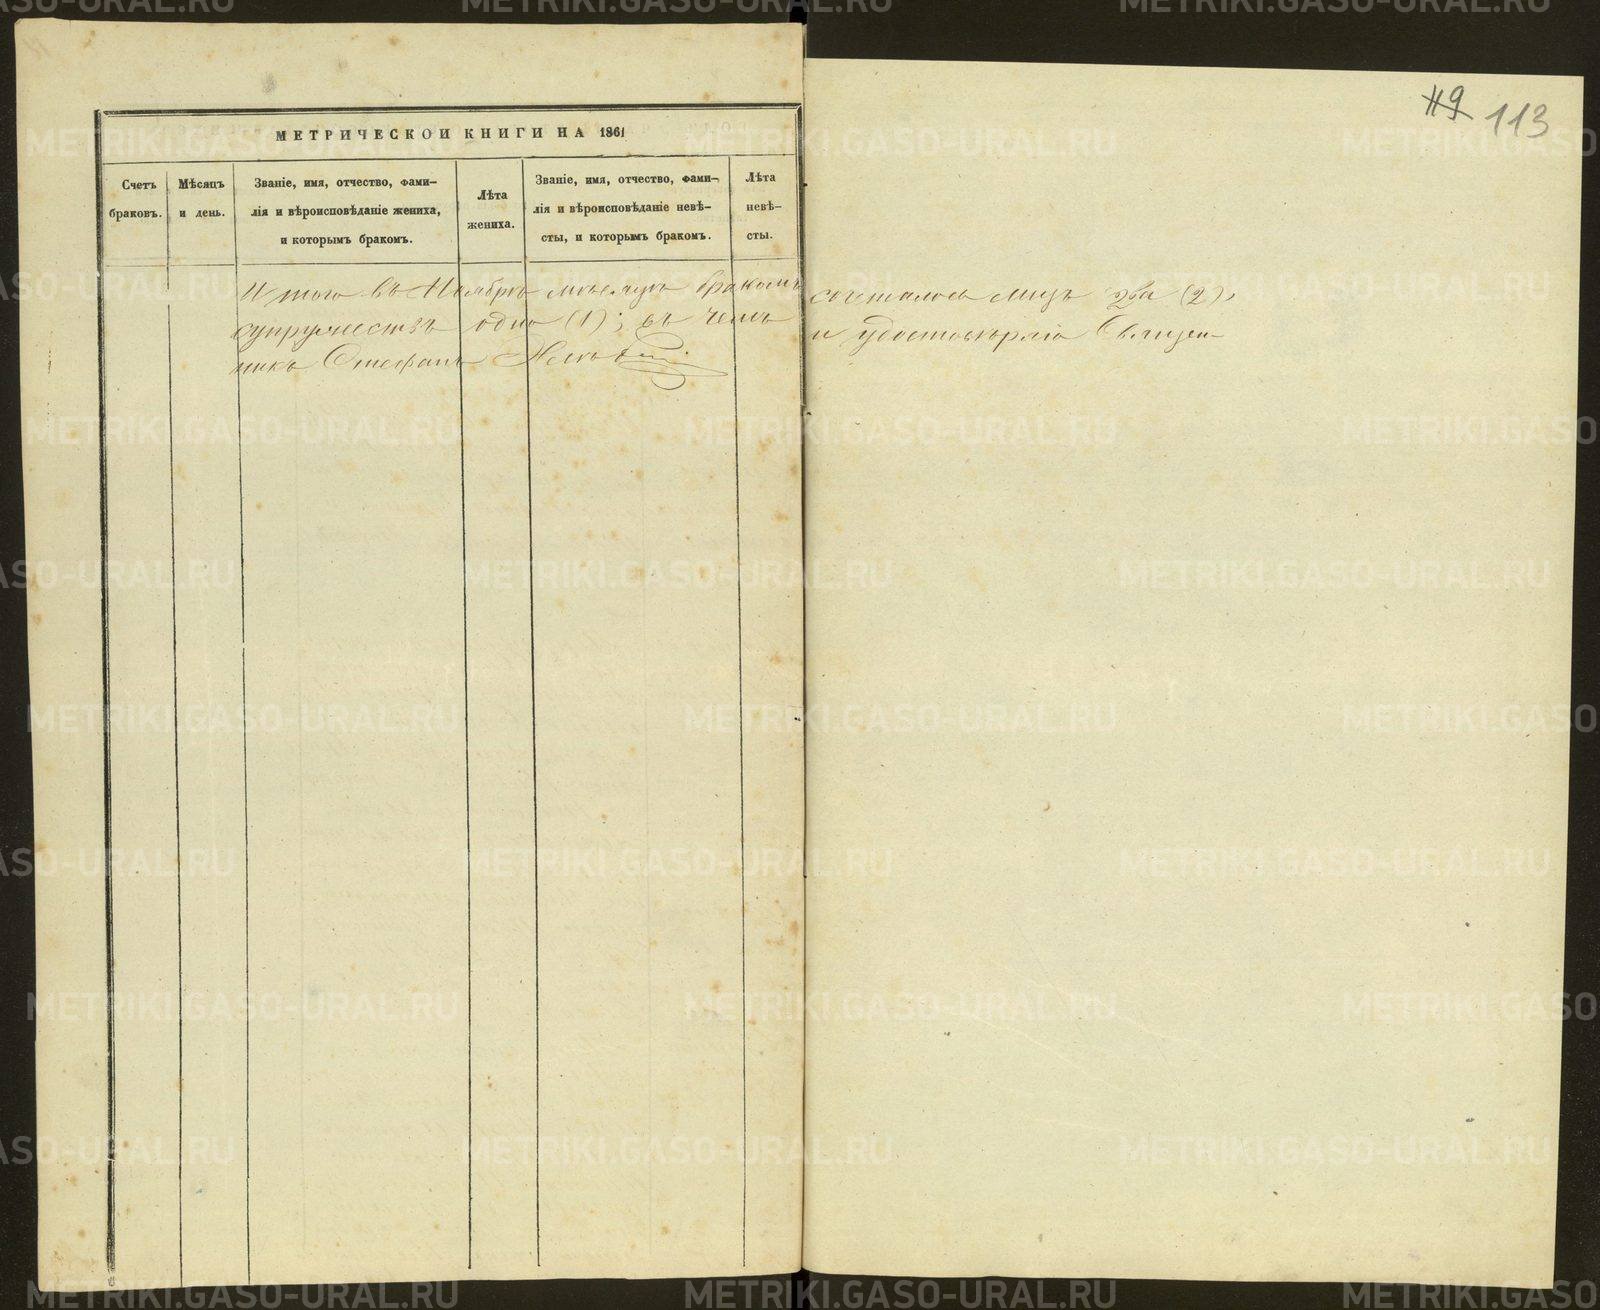 119 113
МЕТРИЧЕСКОЙ КНИГИ НА 1861
Счетъ браковъ.
Мѣсяцъ и день.
Званіе, имя, отчество, фами-
лія и вѣроисповѣданіе жениха,
и которымъ бракомъ.
Лѣта жениха.
Званіе, имя, отчество, фами-
лія и вѣроисповѣданіе невѣ-
сты, и которымъ бракомъ.
Лѣта невѣ-
сты.
Итого въ Ноябрѣ мѣсяцѣ бракомъ сочеталось лицъ два (2),
супружествъ одно (1); въ чемъ и удостовѣряю Священ-
никъ Стефанъ
METRIKI.GASO-URAL.RU